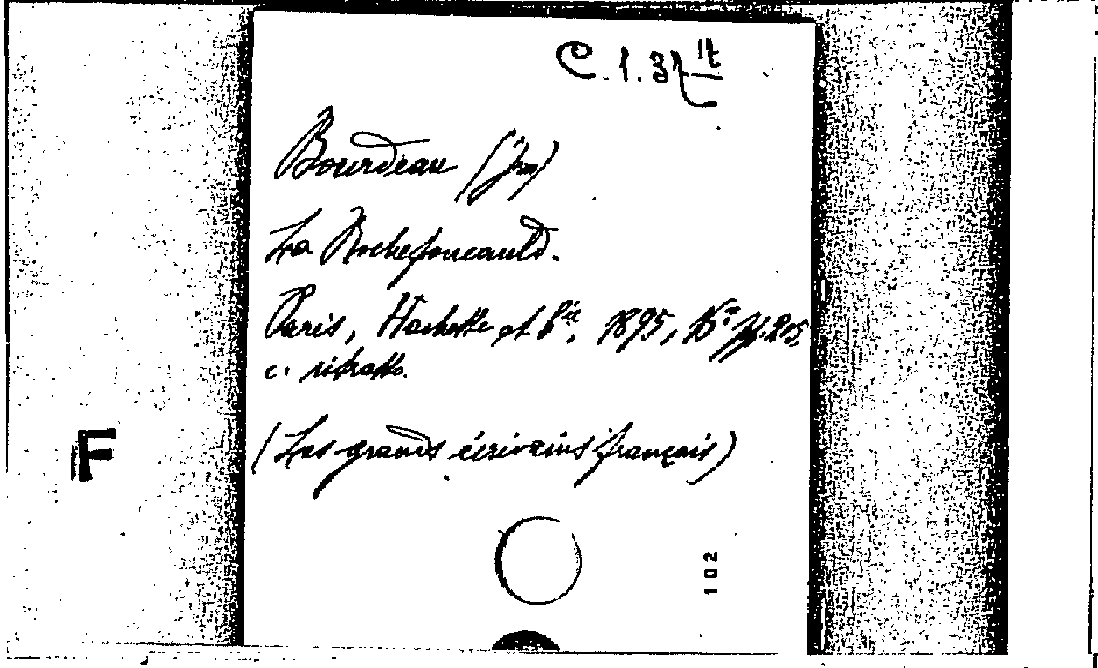 C. 1. 37
Bourdeau (Jean)
La Rochefoucauld.
Paris, Hachette et Cie, 1895, 16° pp. 205,
c. ritratto.
(Les grands écrivains français)
F
102